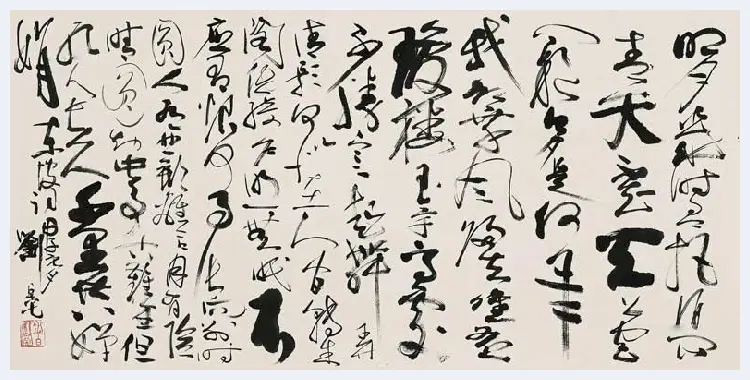 明月幾時有把酒問
青天不知天上宮
闕今夕是何年
我欲乘風歸去唯恐
瓊樓玉宇高處
不勝寒起舞弄
清影何似在人間轉朱
閣低綺戶照無眠不
應有恨何事長向別時
圓人有悲歡離合月有陰
晴圓缺此事古難全但
願人長久千里共嬋
娟
東坡詞
劉